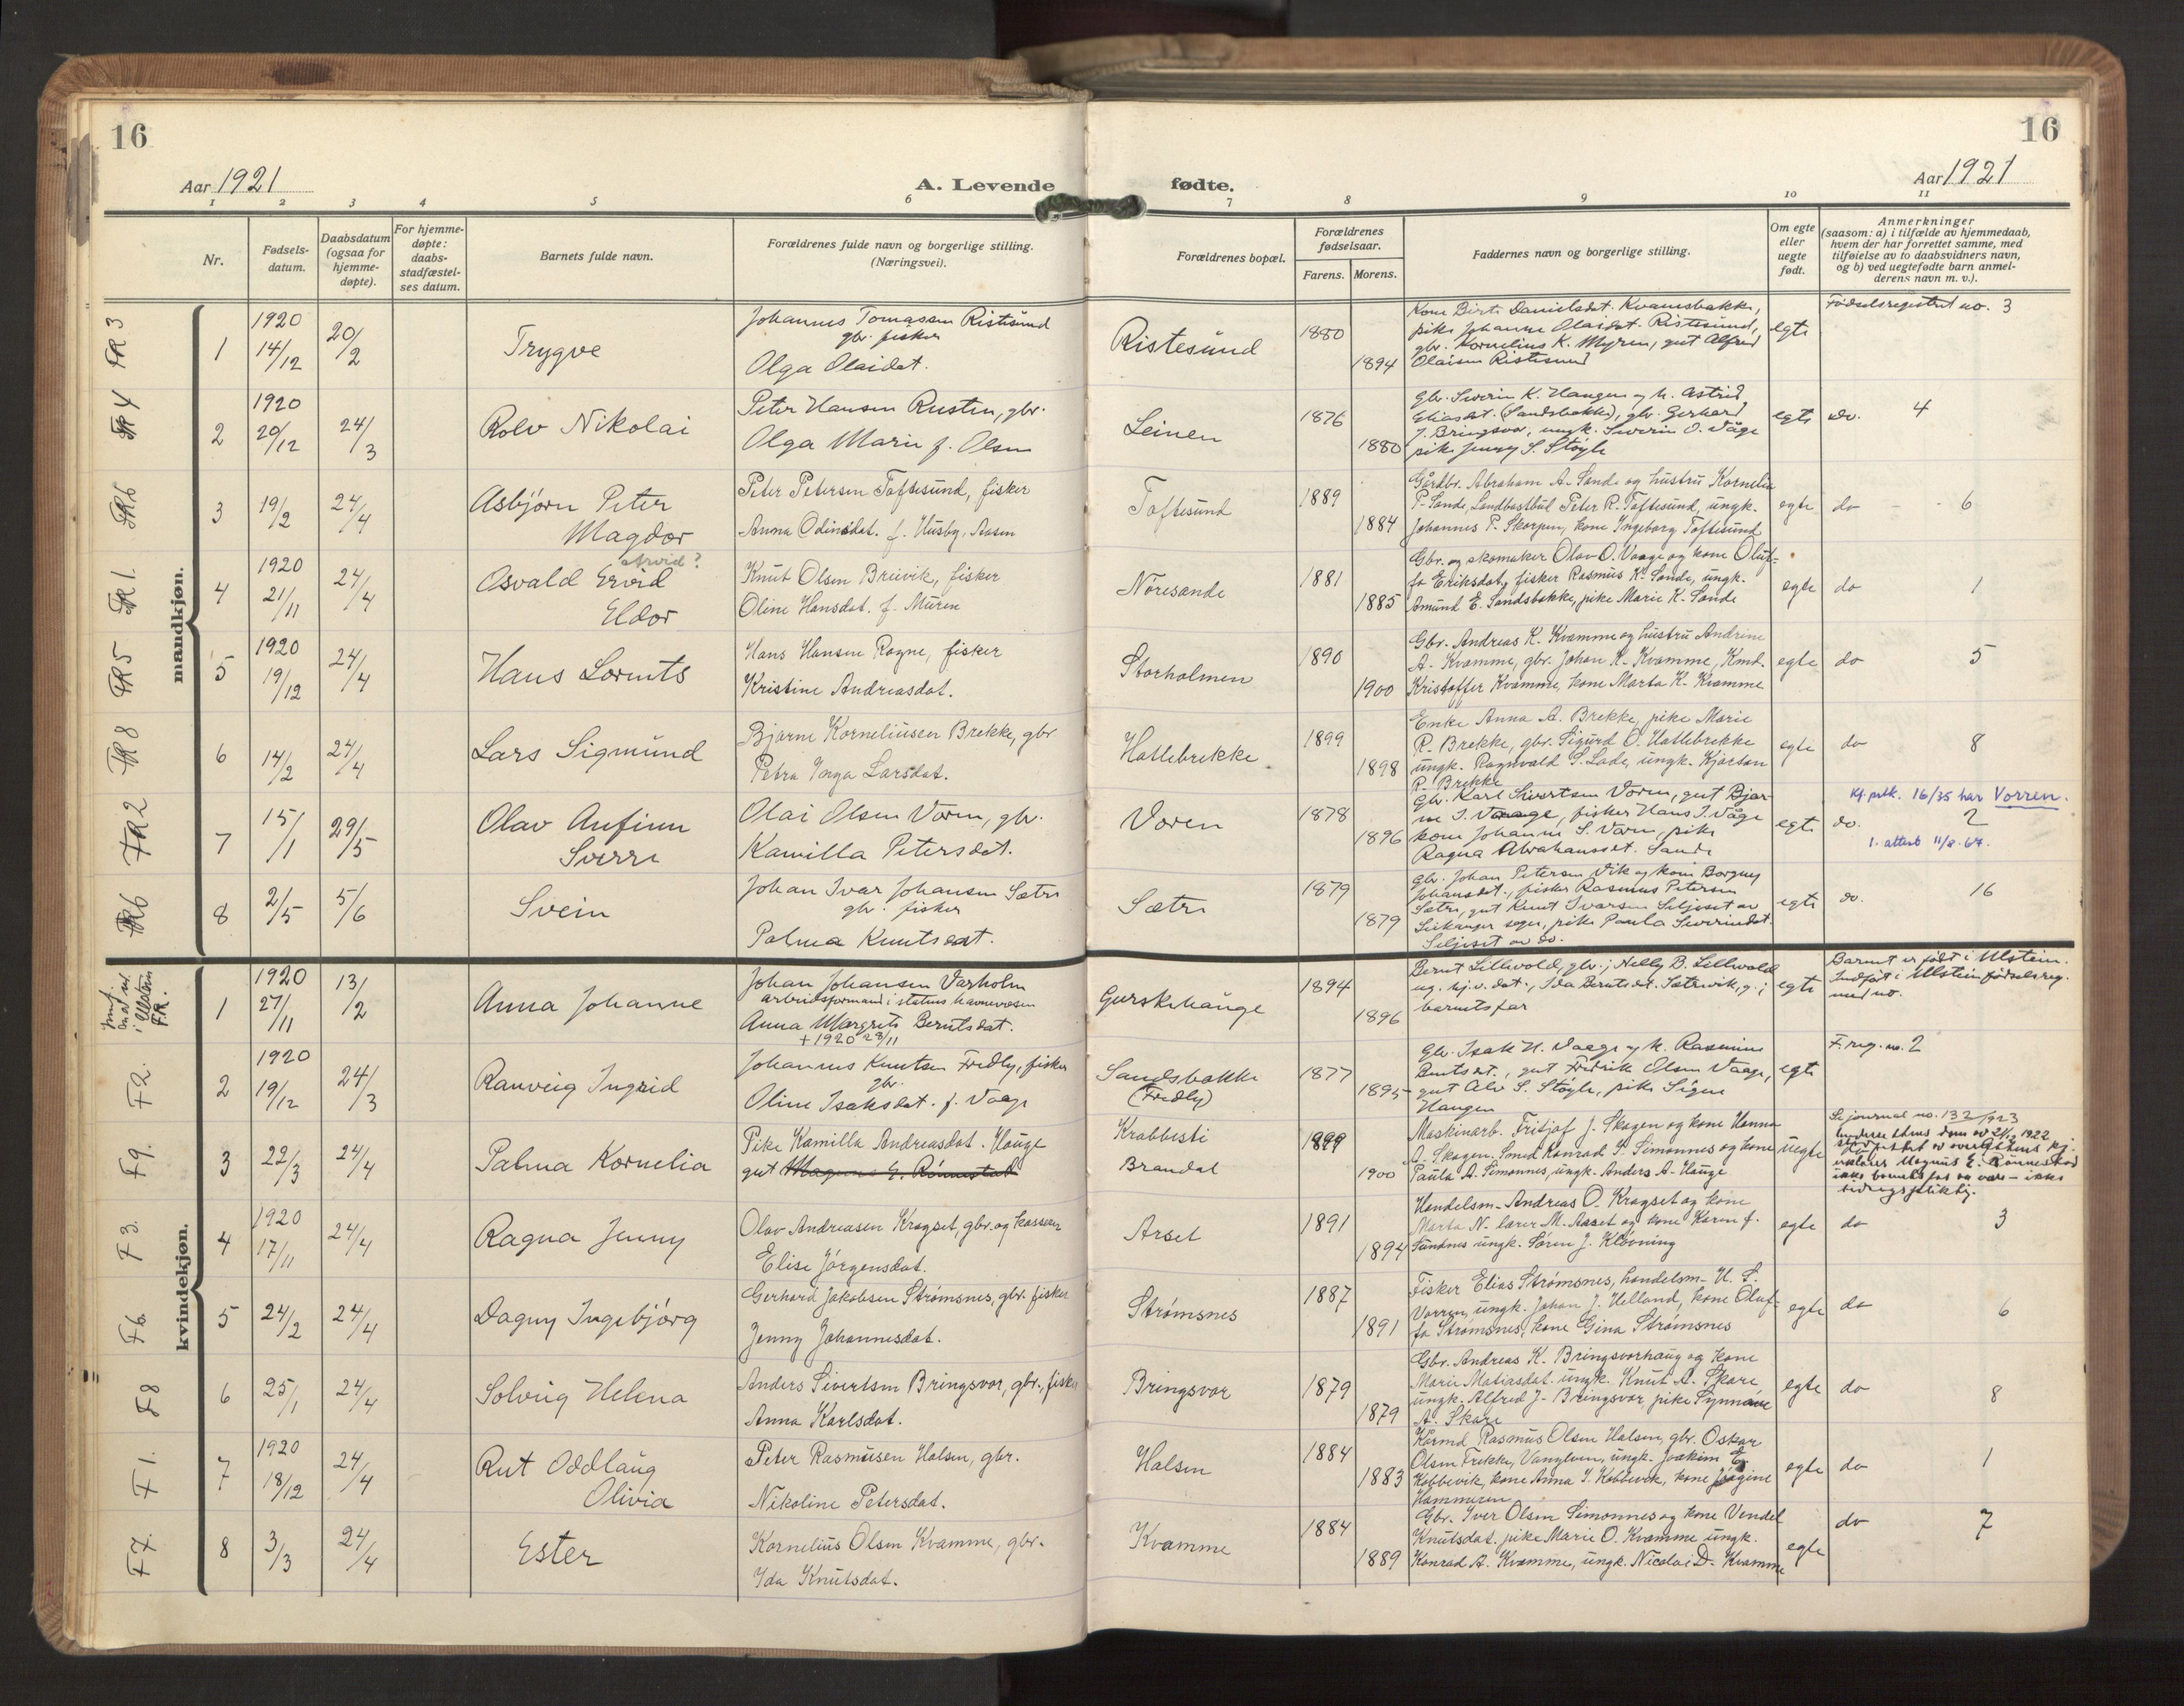 16
16
Aar 1921
A. Levende fødte.
Aar 1921
1 2 3 4 5 6 7 8 9 10 11
Nr.
Fødsels-
datum.
Daabsdatum
(ogsaa for
hjemme-
døpte).
For hjemme-
døpte:
daabs-
stadfæstel-
ses datum.
Barnets fulde navn.
Forældrenes fulde navn og borgerlige stilling.
(Næringsvei).
Forældrenes bopæl.
Forældrenes
fødselsaar.
Farens. Morens.
Faddernes navn og borgerlige stilling.
Om egte
eller
uegte
født.
Anmerkninger
(saasom: a) i tilfælde av hjemmedaab,
hvem der har forrettet samme, med
tilføielse av to daabsvidners navn,
og b) ved uegtefødte barn anmel-
derens navn m. v.).
mandkjøn.
FR 3
1
1920
14/12
20/2
Trygve
Johannes Tomassen Ristesund
gbr. fisker
Olga Olaidat.
Ristesund
1880
1894
Kone Birte Danielsdat. Kvamsbakke,
pike Johanne Olaidat. Ristesund,
gbr. Kornelius K. Myren, gut Alfred
Olaisen Ristesund
egte
Fødselsregistret no. 3
FR 4
2
1920
20/12
24/3
Rolv Nikolai
Peter Hansen Rusten, gbr.
Olga Marie f. Olsen
Leinen
1876
1880
Gbr. Severin K. Haugen og h. Astrid
Eliasdat. (Sandsbakke), gbr. Gerhard
J. Bringsvor, ungk. Severin O. Våge
pike Jenny S. Støyle
egte
do. 4
FR 6
3
19/2
24/4
Asbjørn Peter
Magdor
Peter Petersen Toftesund, fisker
Anna Odinsdat. f. Husby, Aasen
Toftesund
1889
1884
Gårdbr. Abraham A. Sande og hustru Kornelia
P. Sande, Landbastbul Peter R. Toftesund, ungk.
Johannes P. Skorpen, kone Ingeborg Toftesund
egte
do - - 6
FR 1.
4
1920
21/11
24/4
Arvid?
Osvald Ervid
Eldor
Knut Olsen Breivik, fisker
Oline Hansdat. f. Muren
Nøresande
1881
1885
Gbr. og skomaker Olav O. Vaage og kone Oluf-
fa Eriksdat, fisker Rasmus K. Sande, ungk.
Amund E. Sandsbakke, pike Marie K. Sande
egte
do 1
FR 5
5
1920
19/12
24/4
Hans Lorents
Hans Hansen Rogne, fisker
Kristine Andreasdat.
Storholmen
1890
1900
Gbr. Andreas K. Kvamme og hustru Andrine
A. Kvamme, gbr. Johan K. Kvamme, Kmd.
Kristoffer Kvamme, kone Marta K. Kvamme
egte
do 5
FR 8
6
14/2
24/4
Lars Sigmund
Bjarne Korneliussen Brekke, gbr
Petra Inga Larsdat.
Hatlebrekke
1899
1898
Enke Anna A. Brekke, pike Marie
R. Brekke, gbr. Sigurd O. Hatlebrekke
ungk. Ragnvald S. Lade, ungk. Kjartan
R. Brekke
egte
do 8
FR 2
7
15/1
29/5
Olav Anfinn
Sverre
Olai Olsen Voren, gbr.
Kamilla Petersdat.
Voren
1878
1896
Gbr. Karl Sivertsen Voren, gut Bjar-
ne I. Vaage, fisker Hans I. Våge
kone Johanne S. Voren, pike
Ragna Abrahamsdat. Sande
egte
Kf. prtk. 16/35 har Vorren.
do. 2
1. attest 11/8-64.
8
2/5
5/6
Svein
Johan Ivar Johansen Sætre
gbr. fisker
Palma Knutsdat.
Sætre
1879
1879
Gbr. Johan Petersen Vik og kone Borgny
Johansdat., fisker Rasmus Petersen
Sætre, gut Knut Ivarsen Seljeset av
sogn, pike Paula Severinsdat.
Seljeset av do.
egte
do. 16
kvindekjøn.
i Ulstein
F.R.
1
1920
27/11
13/2
Anna Johanne
Johan Johansen Varholm
arbeidsformand i statens havnevæsen
Anna Margrete Berntsdat.
+ 1920 28/11
Gurskehauge
1894
1896
Bernt Lillevold, gbr.; Nelly B. Lillevold
ug. hj.v. dat., Ida Berntsdat. Sætervik, g.;
barnets far
egte
Barnet er født i Ulstein.
Indført i Ulstein fødselsreg.
med no.
F 2.
2
1920
19/12
24/3
Ranveig Ingrid
Johannes Knutsen Fredly, fisker
gbr.
Oline Isaksdat. f. Vaage
Sandsbakke
(Fredly)
1877
1895
Gbr. Isak H. Vaage og k. Rasmine
Berntsdt., gut Fredrik Olsen Vaage,
gut Alv S. Støyle, pike Signe
Haugen
egte
F. reg. no. 2
F 9.
3
22/3
24/4
Palma Kornelia
Pike Kamilla Andreasdat. Hauge
gut Magnus E. Rønnestad
Krabbesti
Brandal
1899
1900
Maskinarb. Fritjof J. Skogen og kone Hanna
A. Skogen. Smed Konrad S. Simonnes og kone
Paula A. Simonnes, ungk. Anders A. Hauge
uegte
Se journal no. 132/1923
dom av 21/12 1922
erklærer Magnus E. Rønnestad
ikke barnets far og være - ikke
bidragspliktig.
F 3.
4
1920
17/11
24/4
Ragna Jenny
Olav Andreasen Kragset, gbr. og kasserer
Elise Jørgensdat.
Arset
1891
1894
Handelsm. Andreas O. Kragset og kone
Marta N. lærer M. Aaset og kone Karen f.
Sundnes ungk. Søren J. Kløvning
egte
do 3
F 6.
5
24/2
24/4
Dagny Ingebjørg
Gerhard Jakobsen Strømsnes, gbr. fisker
Jenny Johannesdat.
Strømsnes
1887
1891
Fisker Elias Strømsnes, handelsm. H. S.
Vorren, ungk. Johan J. Helland, kone Oluf-
fa Strømsnes, kone Gina Strømsnes
egte
do 6
F 8
6
25/1
24/4
Solveig Helena
Anders Sivertsen Bringsvor, gbr., fisker
Anna Karlsdat.
Bringsvor
1879
1879
Gbr. Andreas K. Bringsvorhaug og kone
Marie Matiasdat. ungk. Knut A. Skare
ungk. Alfred J. Bringsvor, pike Synnøve
A. Skare
egte
do 8
F 1.
7
1920
18/12
24/4
Rut Oddlaug
Olivia
Peter Rasmusen Halsen, gbr.
Nikoline Petersdat.
Halsen
1884
1883
Kårmd Rasmus Olsen Halsen, gbr. Oskar
Olsen Frekke, Vanylven, ungk. Joakim E.
Kobbevik, kone Anna S. Kobbevik, kone Jørgine
Hammeren
egte
do 1
F 7.
8
3/3
24/4
Ester
Kornelius Olsen Kvamme, gbr.
Ida Knutsdat.
Kvamme
1884
1889
Gbr. Iver Olsen Simonnes og kone Vendel
Knutsdat. pike Marie O. Kvamme ungk.
Konrad A. Kvamme, ungk. Nicolai D. Kvamme
egte
do 7